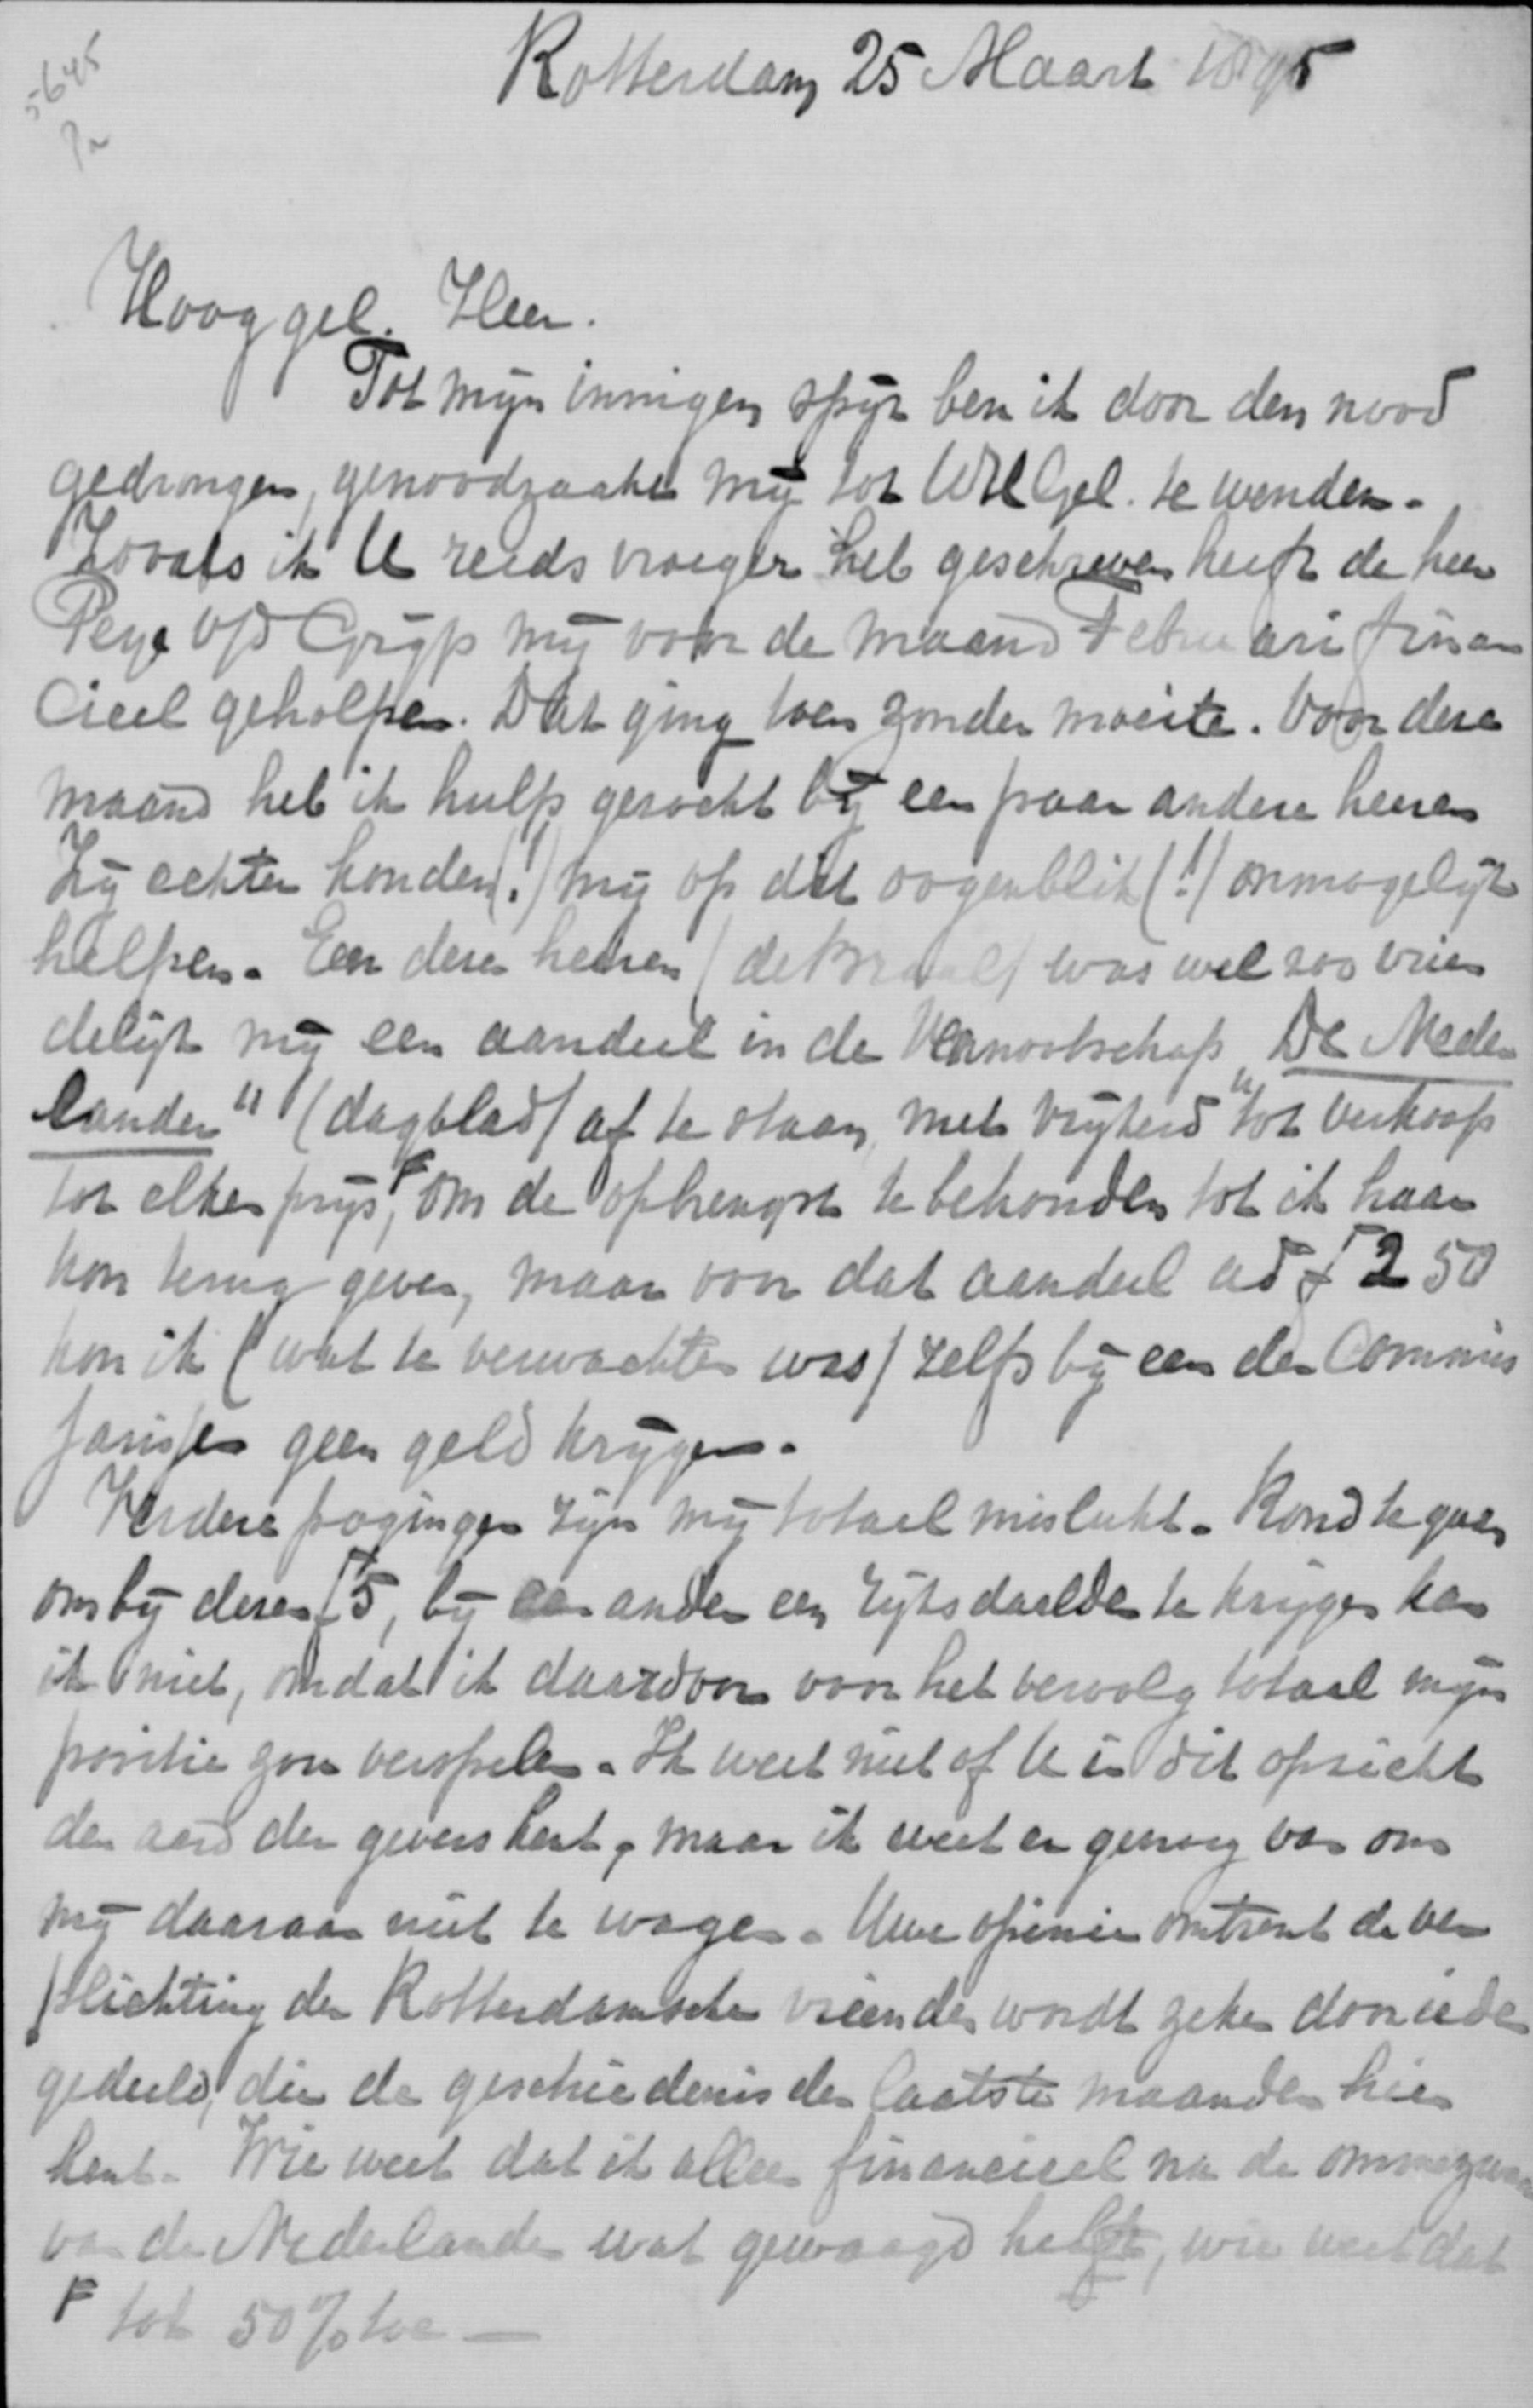 5645
Rotterdam 25 Maart 1895
Hooggel. Heer.
Tot mijn innigen spijt ben ik door den nood
gedrongen, genoodzaakt mij tot UWelGel. te wenden.
Zooals ik U reeds vroeger heb geschreven heeft de heer
op d Grijp mij voor de maand Februari finan
cieel geholpen. Dat ging toen zonder moeite. Voor deze
maand heb ik hulp gezocht bij een paar andere heeren
Zij echter konden (!) mij op dit oogenblik (!) onmogelijk
helpen. Een dezer heeren (de Kraal) was wel zoo vrien
delijk mij een aandeel in de Vennootschap "De Neder
lander" (dagblad) af te staan, met vrijheid "tot verkoop
tot elken prijs, F om de opbrengst te behouden tot ik haar
kon terug geven, maar voor dat aandeel ad f 250
kon ik (wat te verwachten was) zelfs bij een der Commis
sarissen geen geld krijgen.
Verdere pogingen zijn mij totaal mislukt. Rond te gaan
om bij dezen f5, bij een ander een rijksdaalder te krijgen kan
ik niet, omdat ik daardoor voor het vervolg totaal mijn
positie zou verspelen. Ik weet niet of U in dit opzicht
den aard der gevers kent, maar ik weet er genoeg van om
mij daaraan niet te wagen. Uwe opinie omtrent de ver
plichting der Rotterdamsche vrienden wordt zeker door ieder
gedeeld, die de geschiedenis der laatste maanden hier
kent. Wie weet dat ik alleen financieel na de ommezwaai
van de Nederlander wat gewaagd heb, wie weet dat
F tot 50% toe —